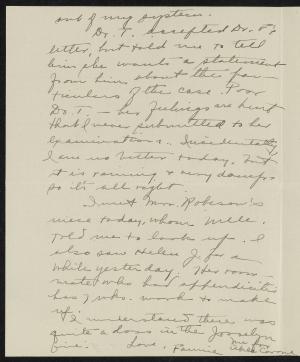 out of my system.
Dr. T. accepted Dr. P's
letter, but told me to tell
him she wants a statement
from him about the par-
ticulars of the case. Poor
Dr. T. - her feelings are hurt
that I never submitted to her
examinations. Incidentally
I am no better today, but
it is raining & very damp
so it's all right.
I met Mrs. Robeson's
niece today, whom Mlle.
told me to look up. I
also saw Helen J. for a
while yesterday. Her room-
mate who had appendicitis
has 7 wks. work to make
up. I understand there was
quite a loss in the Josselyn
fire. Love, Fannie